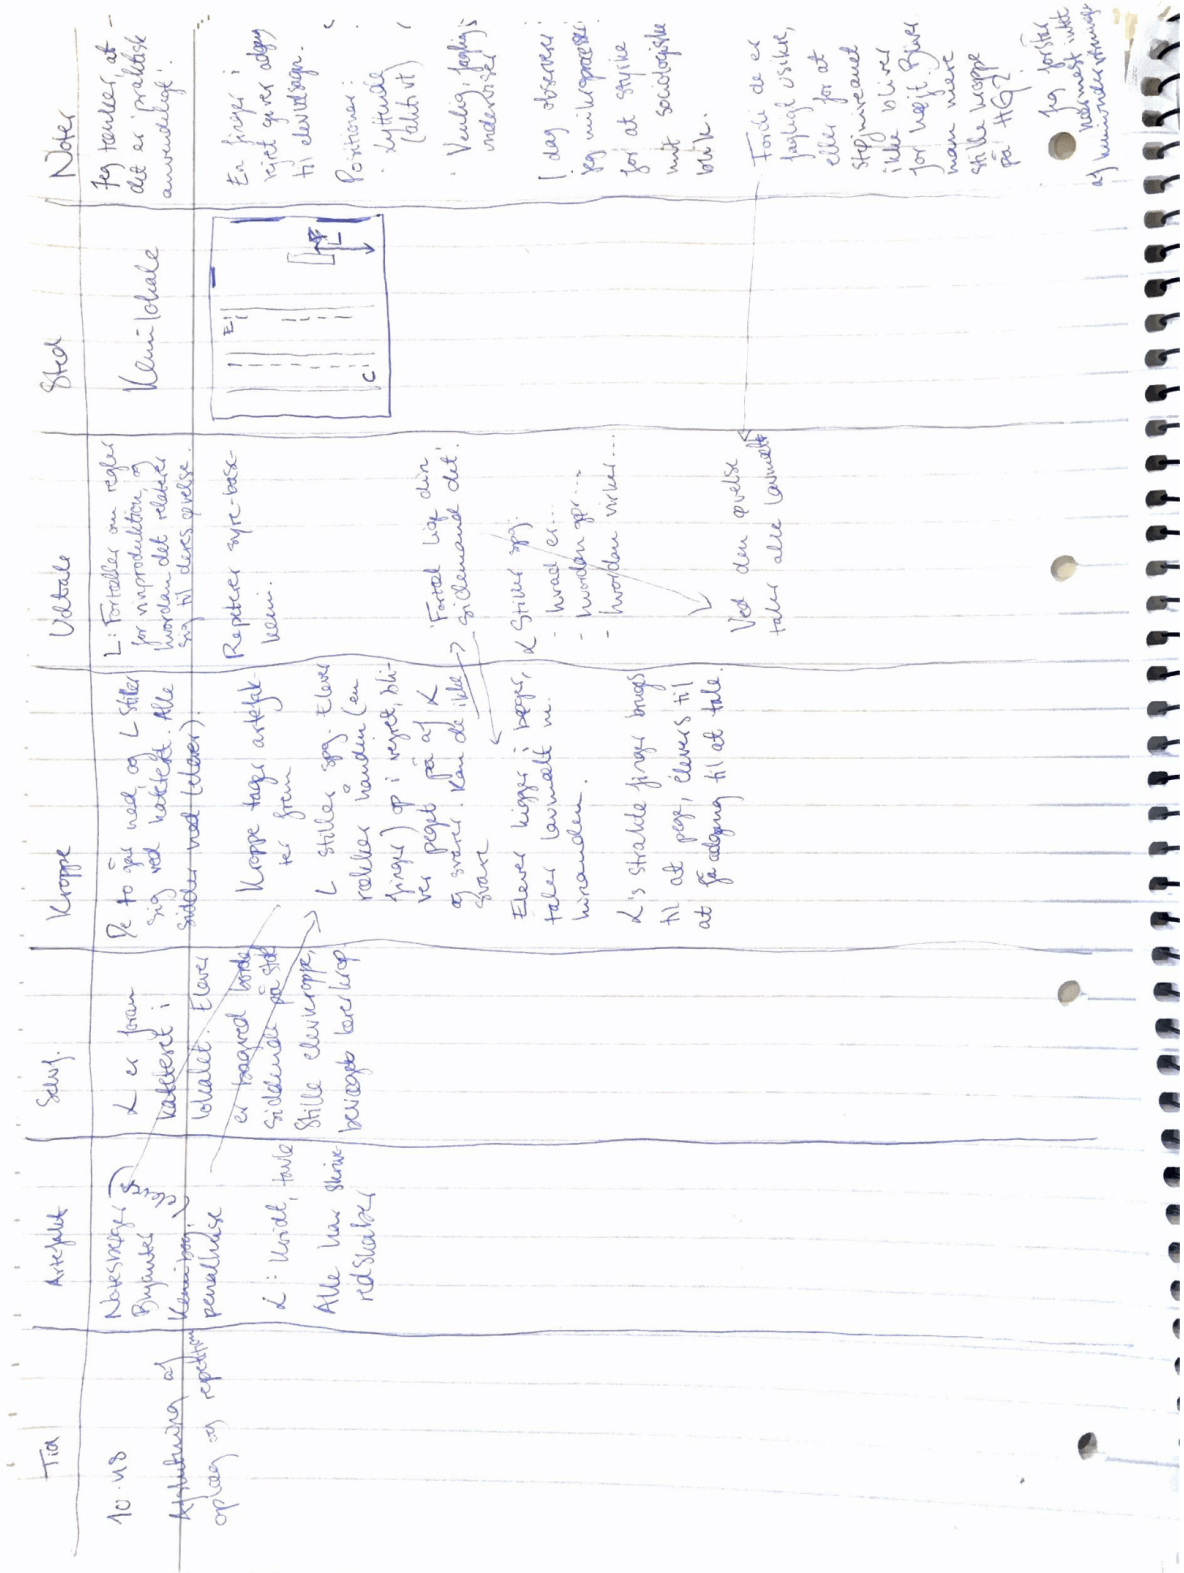 Tid
10.48
Afslutning af
oplæg og repetition
Artefakt
Notesbøger
Blyanter
Kemibog,
penalhuse
L: Kridt, tavle
Alle har skrive-
redskaber
L er foran
kateteret i
lokalet. Elever
er bagved borde
siddende på stole
Stille elevkroppe,
bevæget lærerkrop
Kroppe
De to går ned, og L stiller
sig ved katetert. Alle
sidder ned (elever).
Kroppe tager artefak-
ter frem
L stiller spg. Elever
rækker hånden (en
finger) op i vejret, bli-
ver peget på af L
og svarer. Kan de ikke
svare
Elever kigger i bøger,
taler lavmælt m.
hinanden.
L's strakte finger bruges
til at pege, elevers til
at få adgang til at tale.
Udtale
L: Fortæller om regler
for vinproduktion, og
hvordan det relaterer
sig til deres øvelse.
Repeterer syre-base-
kemi.
'Fortæl lige din
sidemand det'.
L stiller spg:
- hvad er...
- hvordan gør...
- hvordan virker...
Ved den øvelse
taler alle lavmælt
Sted
Kemilokale
E
L
C
Noter
Jeg tænker, at
det er 'praktisk
anvendeligt'.
En finger i
vejret giver adgang
til elevudsagn.
Positioner:
· Lyttende
(aktivt)
· Venlig, faglig
underviser
I dag observerer
jeg mikroprocesser
for at styrke
mit sociologiske
blik.
Fordi de er
fagligt usikre,
eller for at
støjniveauet
ikke bliver
for højt. Bliver
man mere
stille kroppe
på HG?
Jeg forstår
nærmest intet
af kemiundervisningen